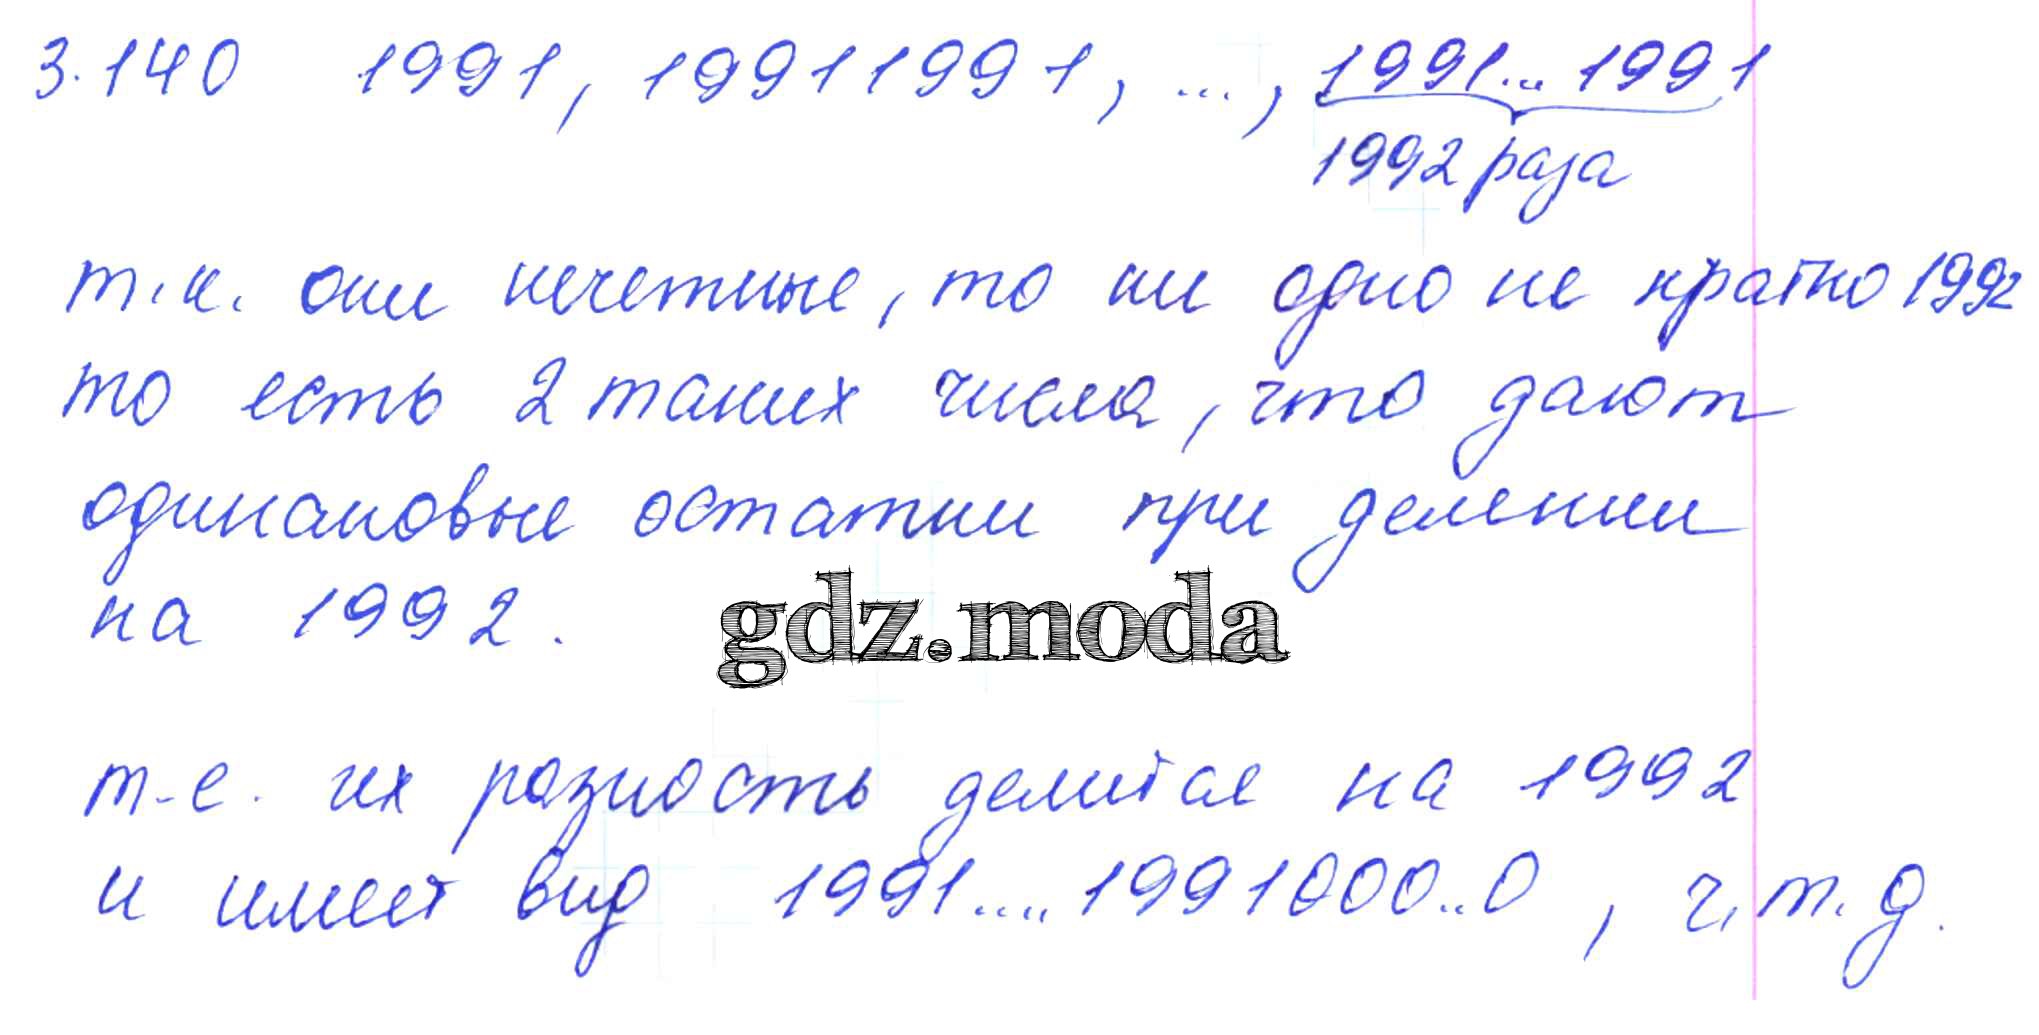 3.140 1991, 19911991, ..., 1991...1991
1992 раза
т.к. они нечетные, то ни одно не кратно 1992
то есть 2 таких числа, что дают
одинаковые остатки при делении
на 1992.
gdz.moda
т-е. их разность делится на 1992
и имеет вид 1991....1991000..0, ч.т.д.